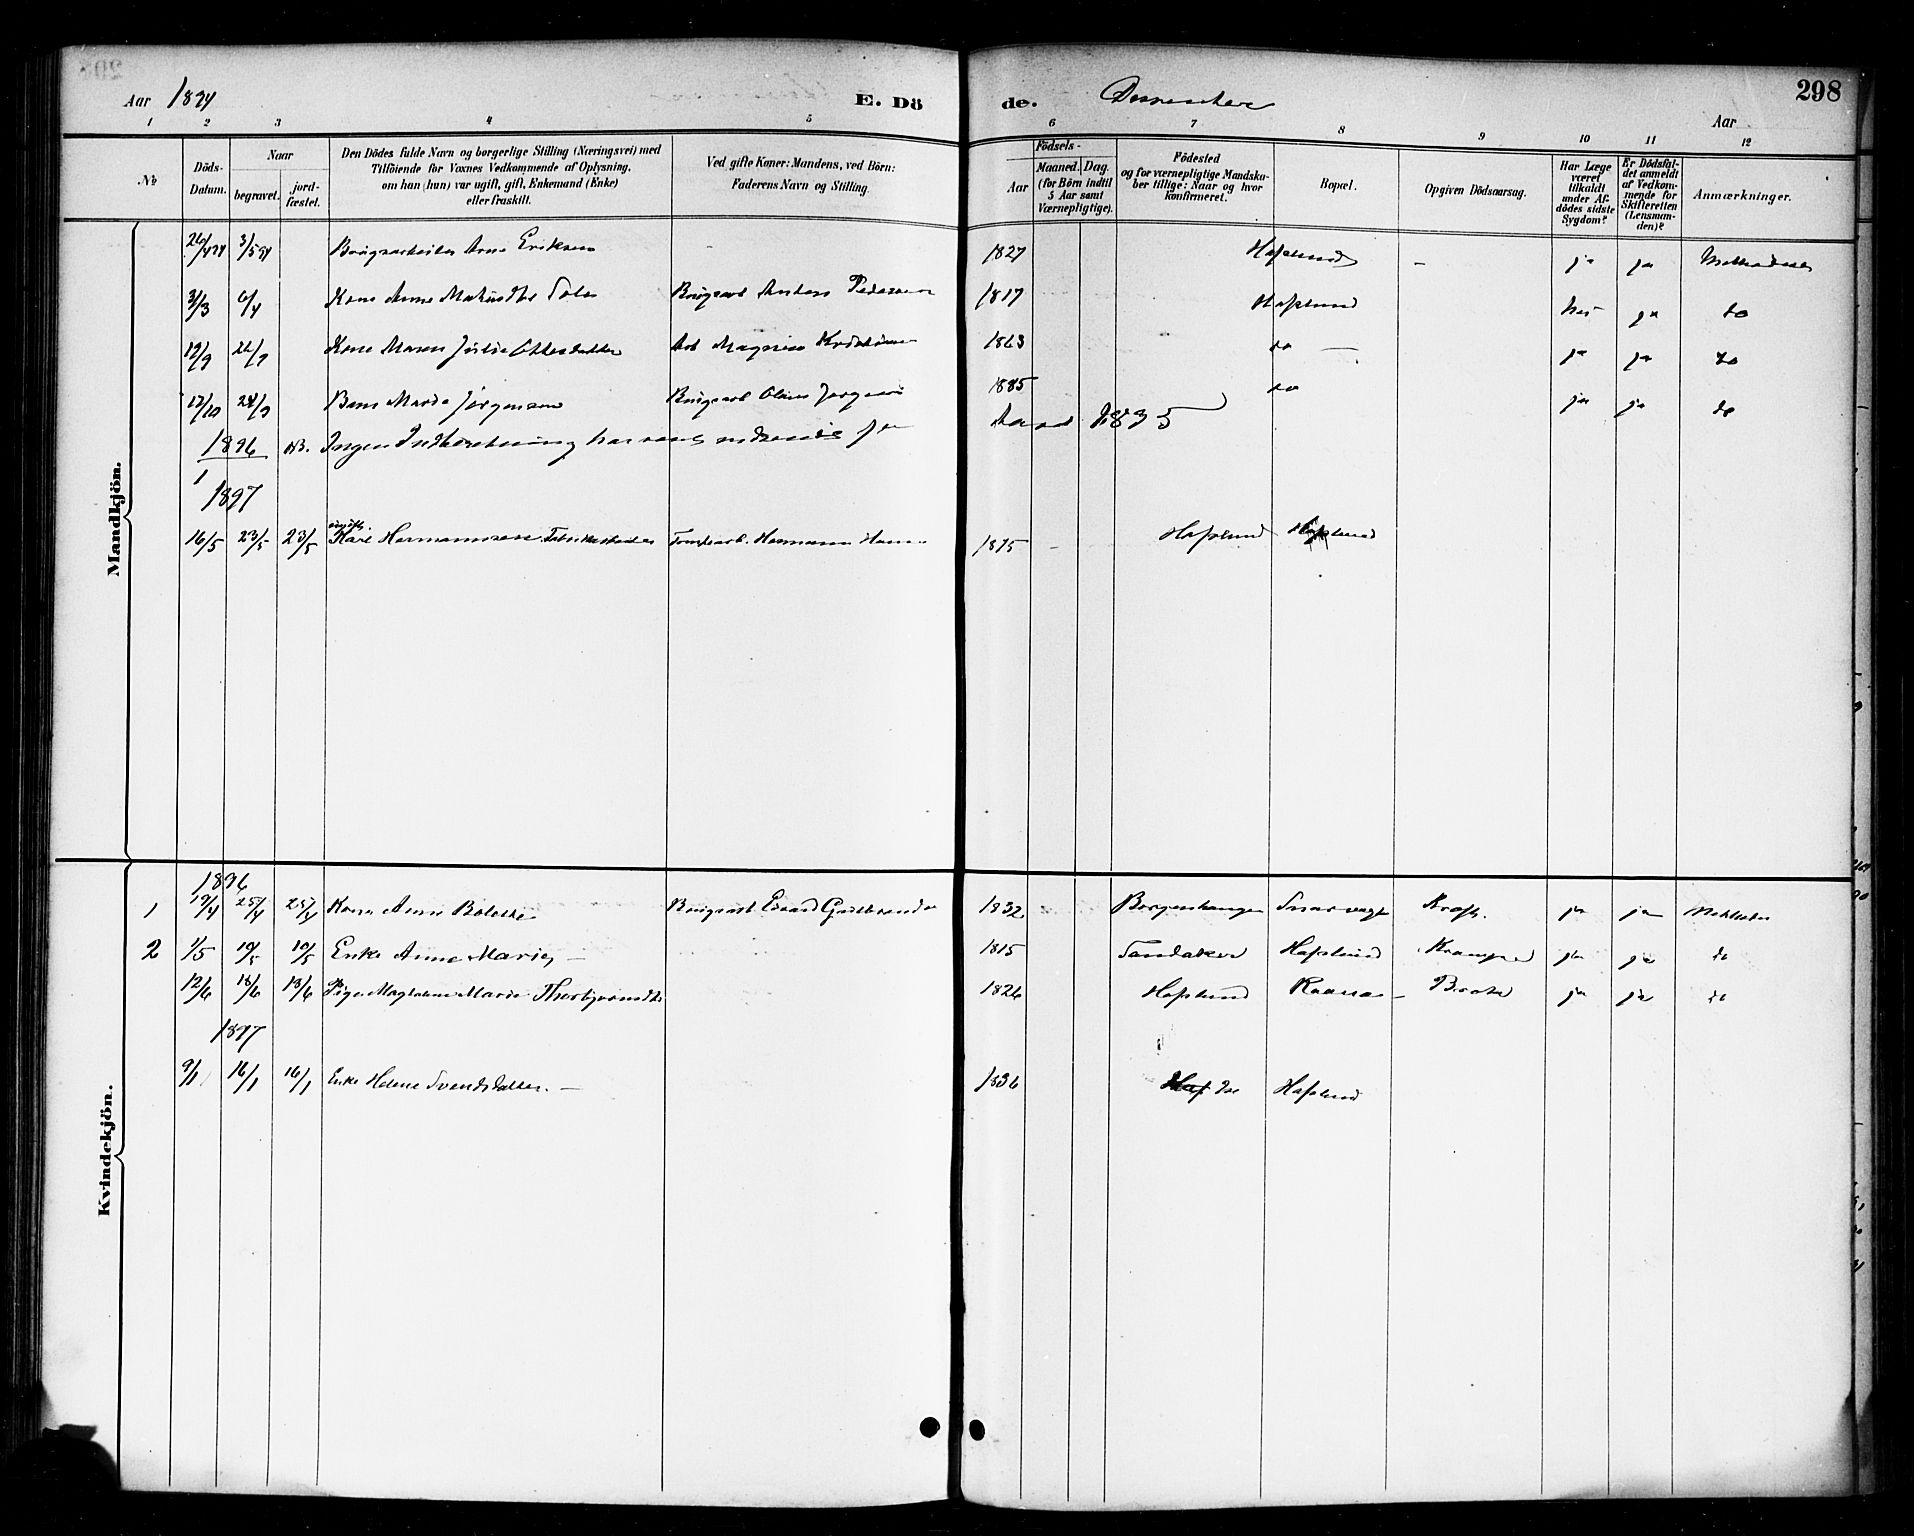 298
Aar 1894
E. Dö
de.
Dissentere
Aar
1 2 3 4 5 6 7 8 9 10 11 12
№
Döds-Datum.
Naar
begravet.
jord-fæstet.
Den Dödes fulde Navn og borgerlige Stilling (Næringsvei) med
Tilföiende for Voxnes Vedkommende af Oplysning,
om han (hun) var ugift, gift, Enkemand (Enke)
eller fraskilt.
Ved gifte Koner: Mandens, ved Börn:
Faderens Navn og Stilling.
Födsels-
Aar
Maaned. Dag.
(for Börn indtil
5 Aar samt
Værnepligtige).
Födested
og for værnepligtige Mandska-
ber tillige: Naar og hvor
konfirmeret.
Bopæl.
Opgiven Dödsaarsag.
Har Læge
været
tilkaldt
under Af-
dödes sidste
Sygdom?
Er Dödsfal-
det anmeldt
af Vedkom-
mende for
Skifteretten
(Lensman-
den)?
Anmærkninger.
Mandkjön.
26/4 94 3/5 94 Brugsarbeider Arne Eriksen 1827 Hafslund – ja ja
31/3 6/4 Kone Anne Brugsarb Anders Pedersen 1817 Hafslund nei ja do
19/9 26/9 Kone Maren Julie Ottersdatter Arb Magnus 1863 do — ja ja do
17/10 24/9 Barn Marie Jörgensen Brugsarb Olaus Jörgensen 1885 do ja ja do
1896 NB. Ingen Indberetning har været indsendt for Aaret 1895
1897
16/5 23/5 23/5 ugift. Karl Hermannsen Fabrikarbeider Hermann Hansen 1875 – Hafslund Hafslund
Kvindekjön.
1896
1 19/4 25/4 25/4 Kone Anne Bolette Brugsarb Edvard Gulbrandsen 1832 Borgenhaugen Kræft. ja ja
2 1/5 10/5 10/5 Enke Anne Marie – 1815 Sandaker Hafslund Krampe ja ja do
12/6 18/6 18/6 Pige Magdalene Marie 1826 Hafslund – ja ja do
1897
9/1 16/1 16/1 Enke Helene Svendsdatter. – 1836 Hafslund